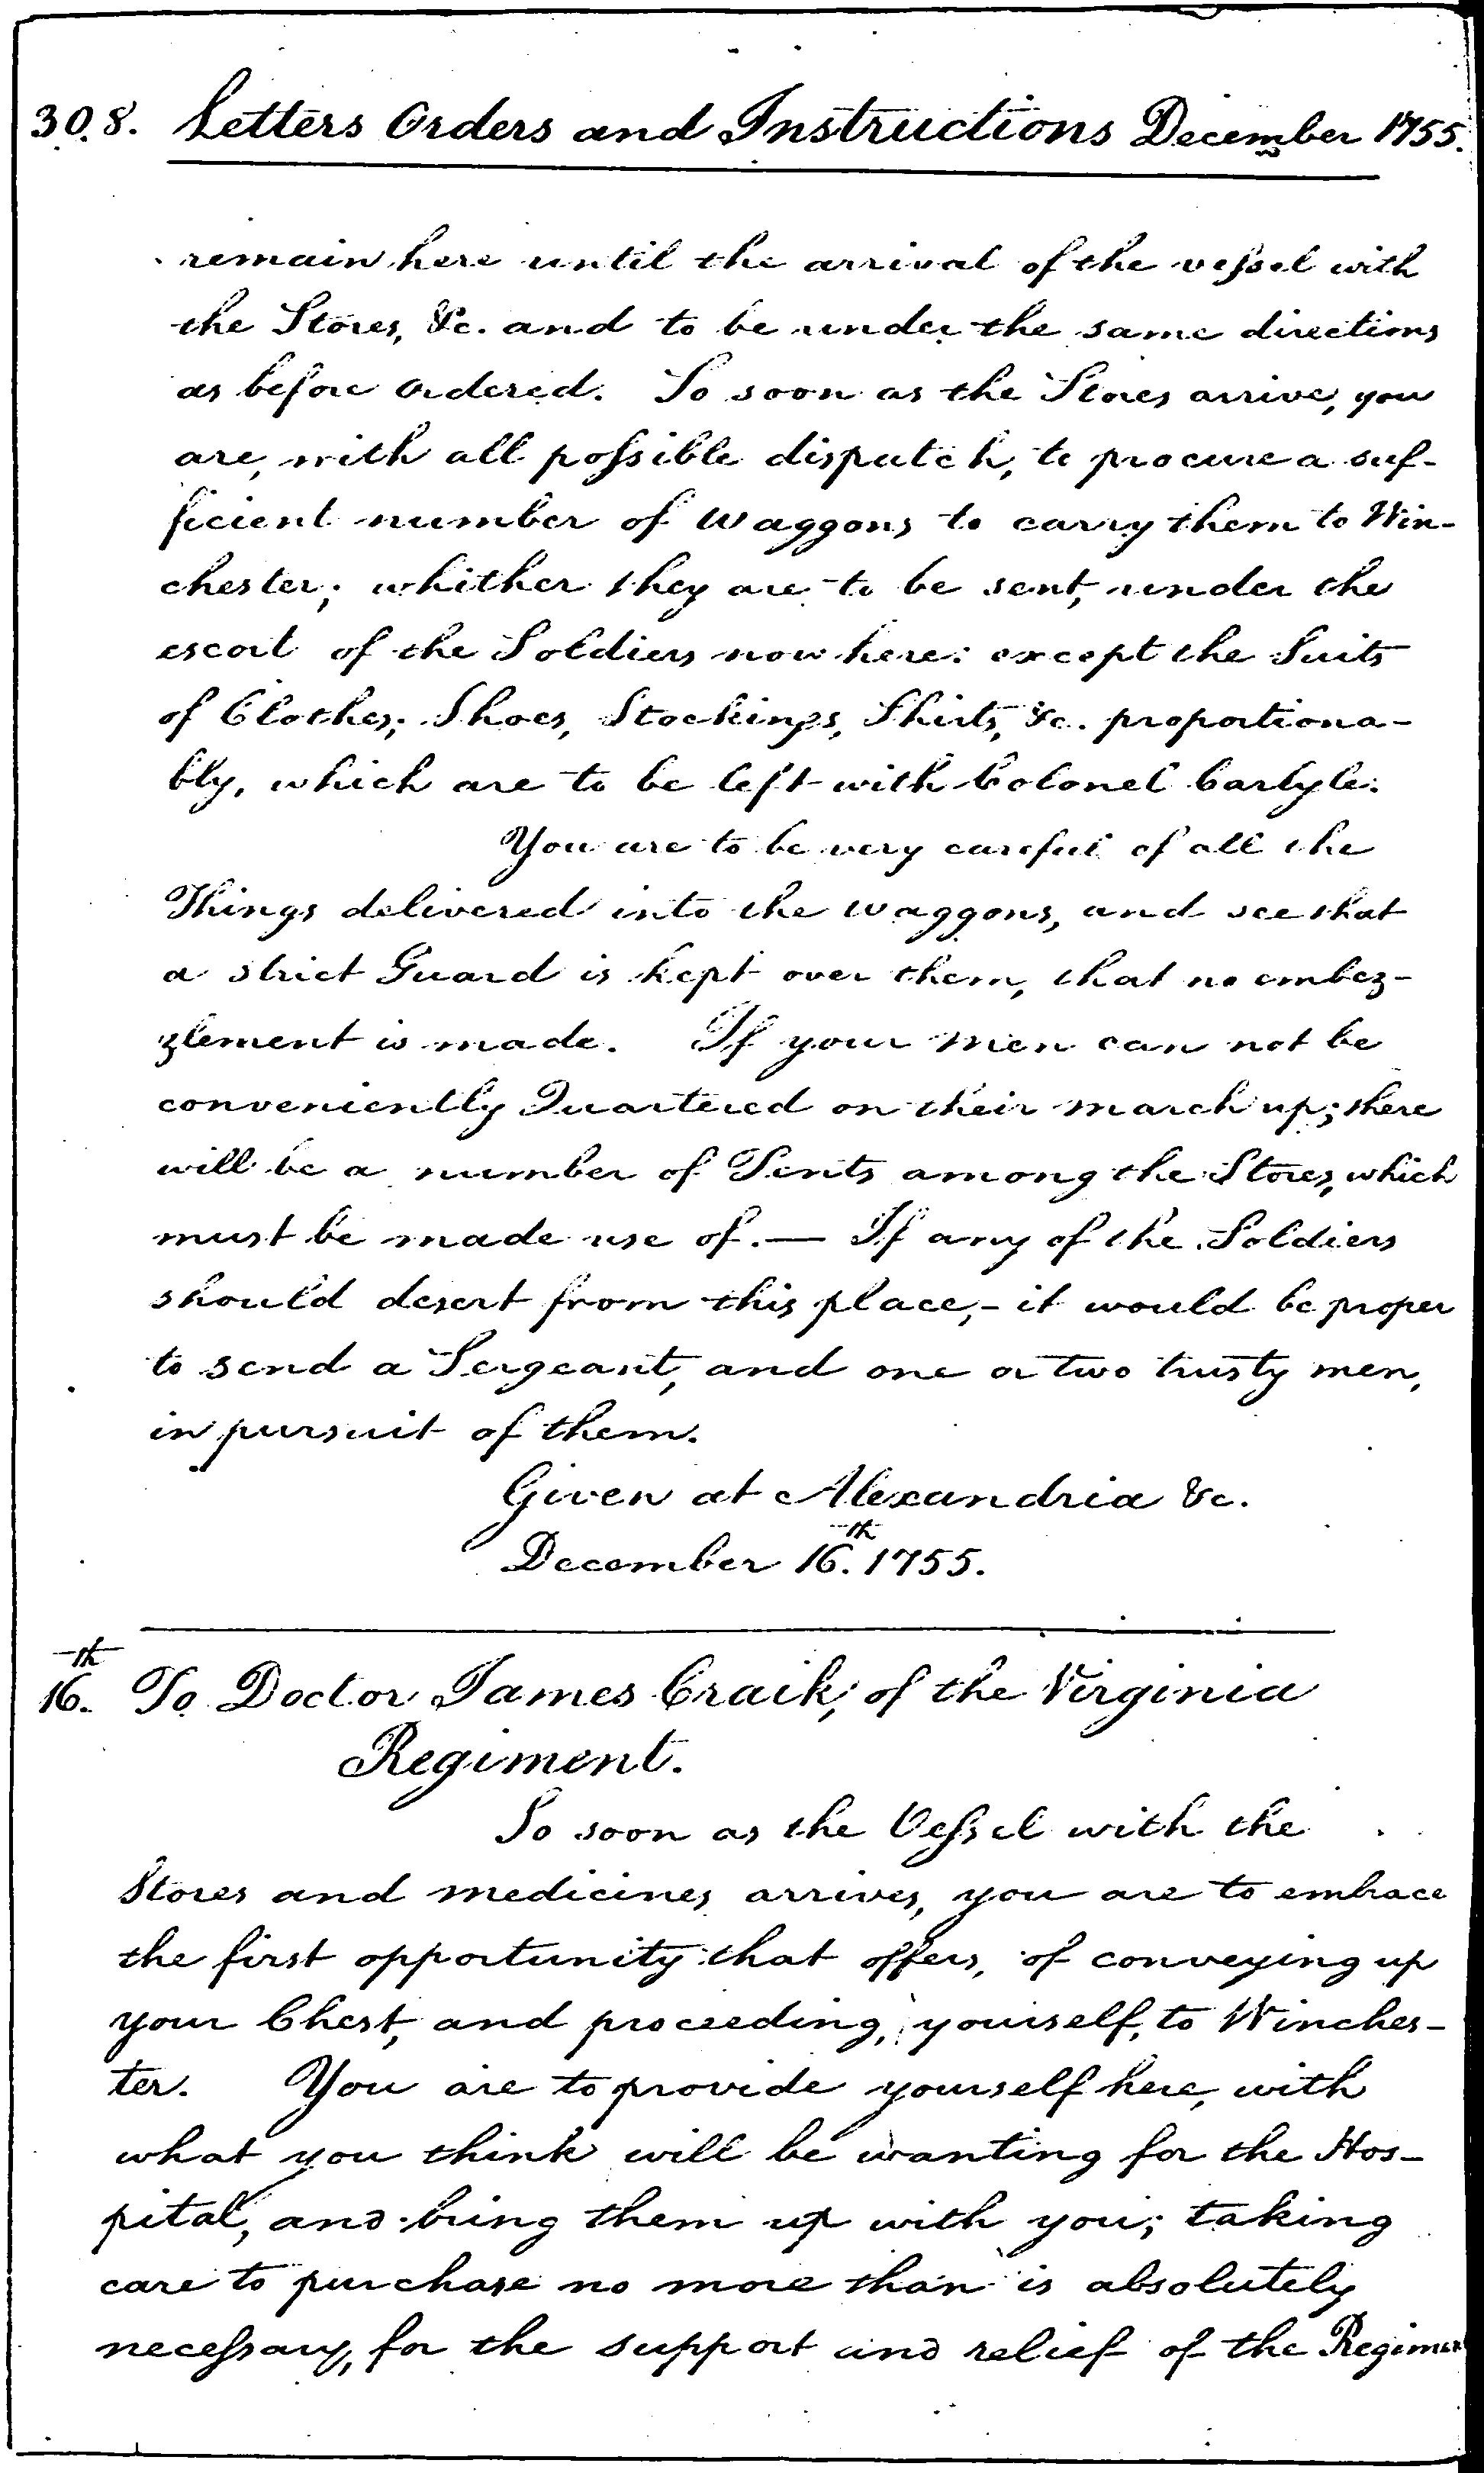 308. Letters Orders and Instructions December 1755.
remain here until the arrival of the vessel with
the Stores, &c. and to be under the same directions
as before ordered. So soon as the Stores arrive, you
are, with all possible dispatch, to procure a suf-
ficient number of waggons to carry them to Win-
chester; whither they are to be sent, under the
escort of the Soldiers now here: except the Suits
of Clothes; Shoes, Stockings, Shirts, &c. proportiona-
bly, which are to be left with Colonel Carlyle.
You are to be very careful of all the
Things delivered into the waggons, and see that
a strict Guard is kept over them, that no embez-
zlement is made. If your men can not be
conveniently Quartered on their march up; there
will be a number of Tents among the Stores, which
must be made use of. — If any of the Soldiers
should desert from this place, - it would be proper
to send a Sergeant, and one or two trusty men,
in pursuit of them.
Given at Alexandria &c.
December 16.th 1755.
16.th To Doctor James Craik, of the Virginia
Regiment.
So soon as the Vessel with the
Stores and medicines arrives, you are to embrace
the first opportunity that offers, of conveying up
your Chest, and proceeding, yourself, to Winches-
ter. You are to provide yourself here, with
what you think will be wanting for the Hos-
pital, and bring them up with you; taking
care to purchase no more than is absolutely
necessary, for the support and relief of the Regimen